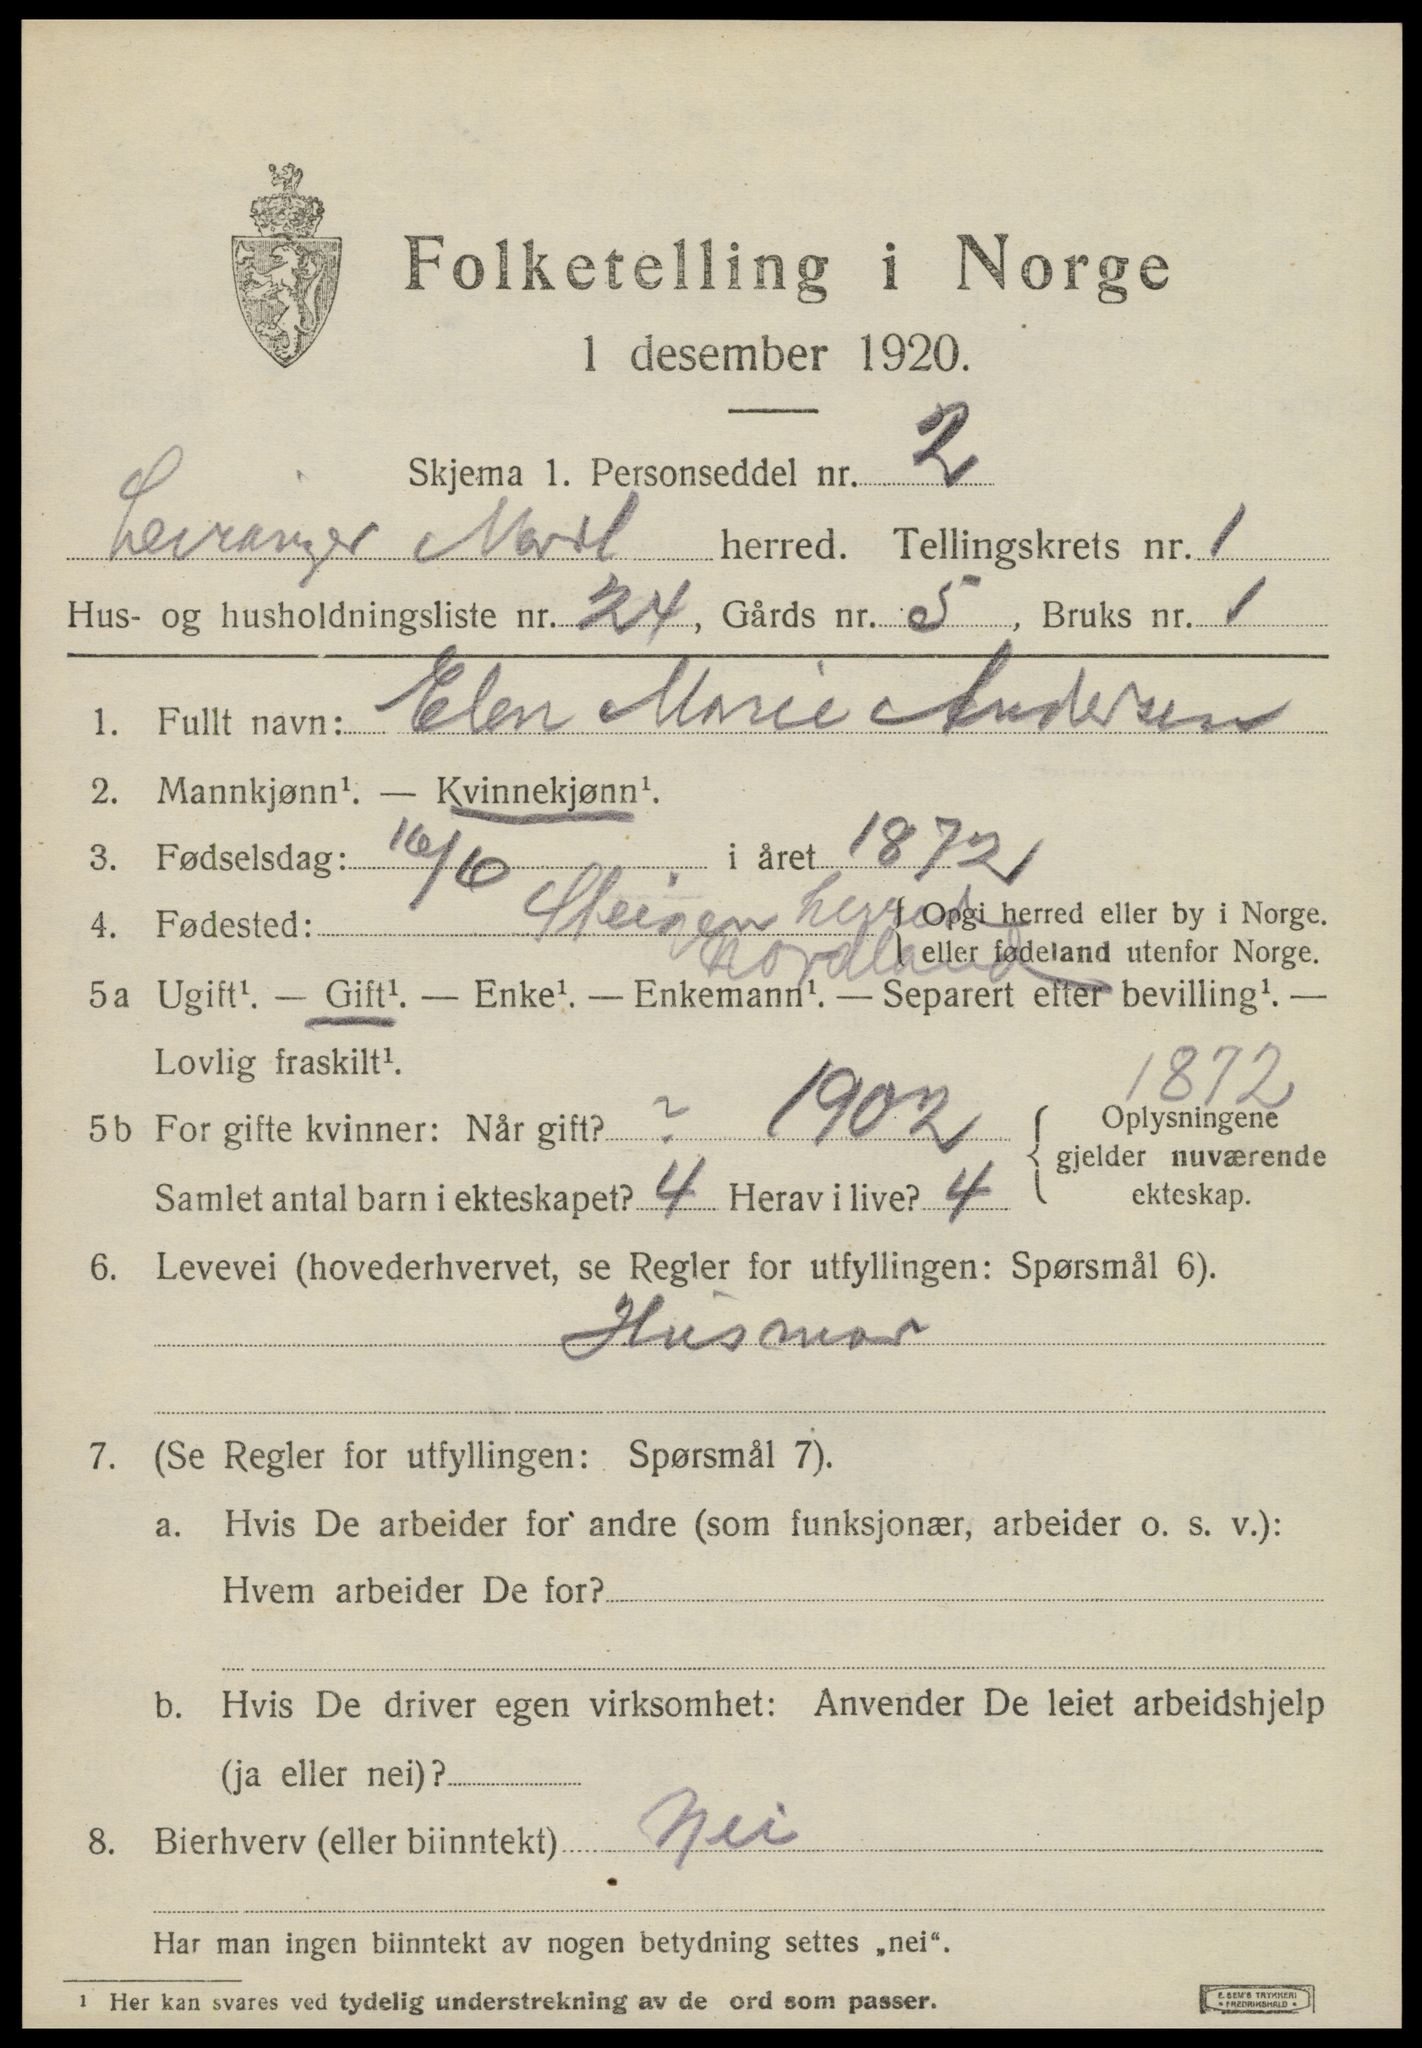 Folketelling i Norge
1 desember 1920.
Skjema 1. Personseddel nr. 2
Leiranger herred. Tellingskrets nr. 1
Hus- og husholdningsliste nr. 24, Gårds nr. 5, Bruks nr. 1
1. Fullt navn: Elen Marie Andersen
2. Mannkjønn¹. — Kvinnekjønn¹.
3. Fødselsdag: 16/6 i året 1872
4. Fødested: Steigen herred { Opgi herred eller by i Norge.
Nordland } eller fødeland utenfor Norge.
5a Ugift¹. — Gift¹. — Enke¹. — Enkemann¹. — Separert efter bevilling¹. —
Lovlig fraskilt¹.
1872
5b For gifte kvinner: Når gift? ? 1902 { Oplysningene
gjelder nuværende
Samlet antal barn i ekteskapet? 4 Herav i live? 4 ekteskap.
6. Levevei (hovederhvervet, se Regler for utfyllingen: Spørsmål 6).
Husmor
7. (Se Regler for utfyllingen: Spørsmål 7).
a. Hvis De arbeider for andre (som funksjonær, arbeider o. s. v.):
Hvem arbeider De for?
b. Hvis De driver egen virksomhet: Anvender De leiet arbeidshjelp
(ja eller nei)?
8. Bierhverv (eller biinntekt) Nei
Har man ingen biinntekt av nogen betydning settes „nei“.
¹ Her kan svares ved tydelig understrekning av de ord som passer.
E. SEM'S TRYKKERI
• FREDRIKSHALD •